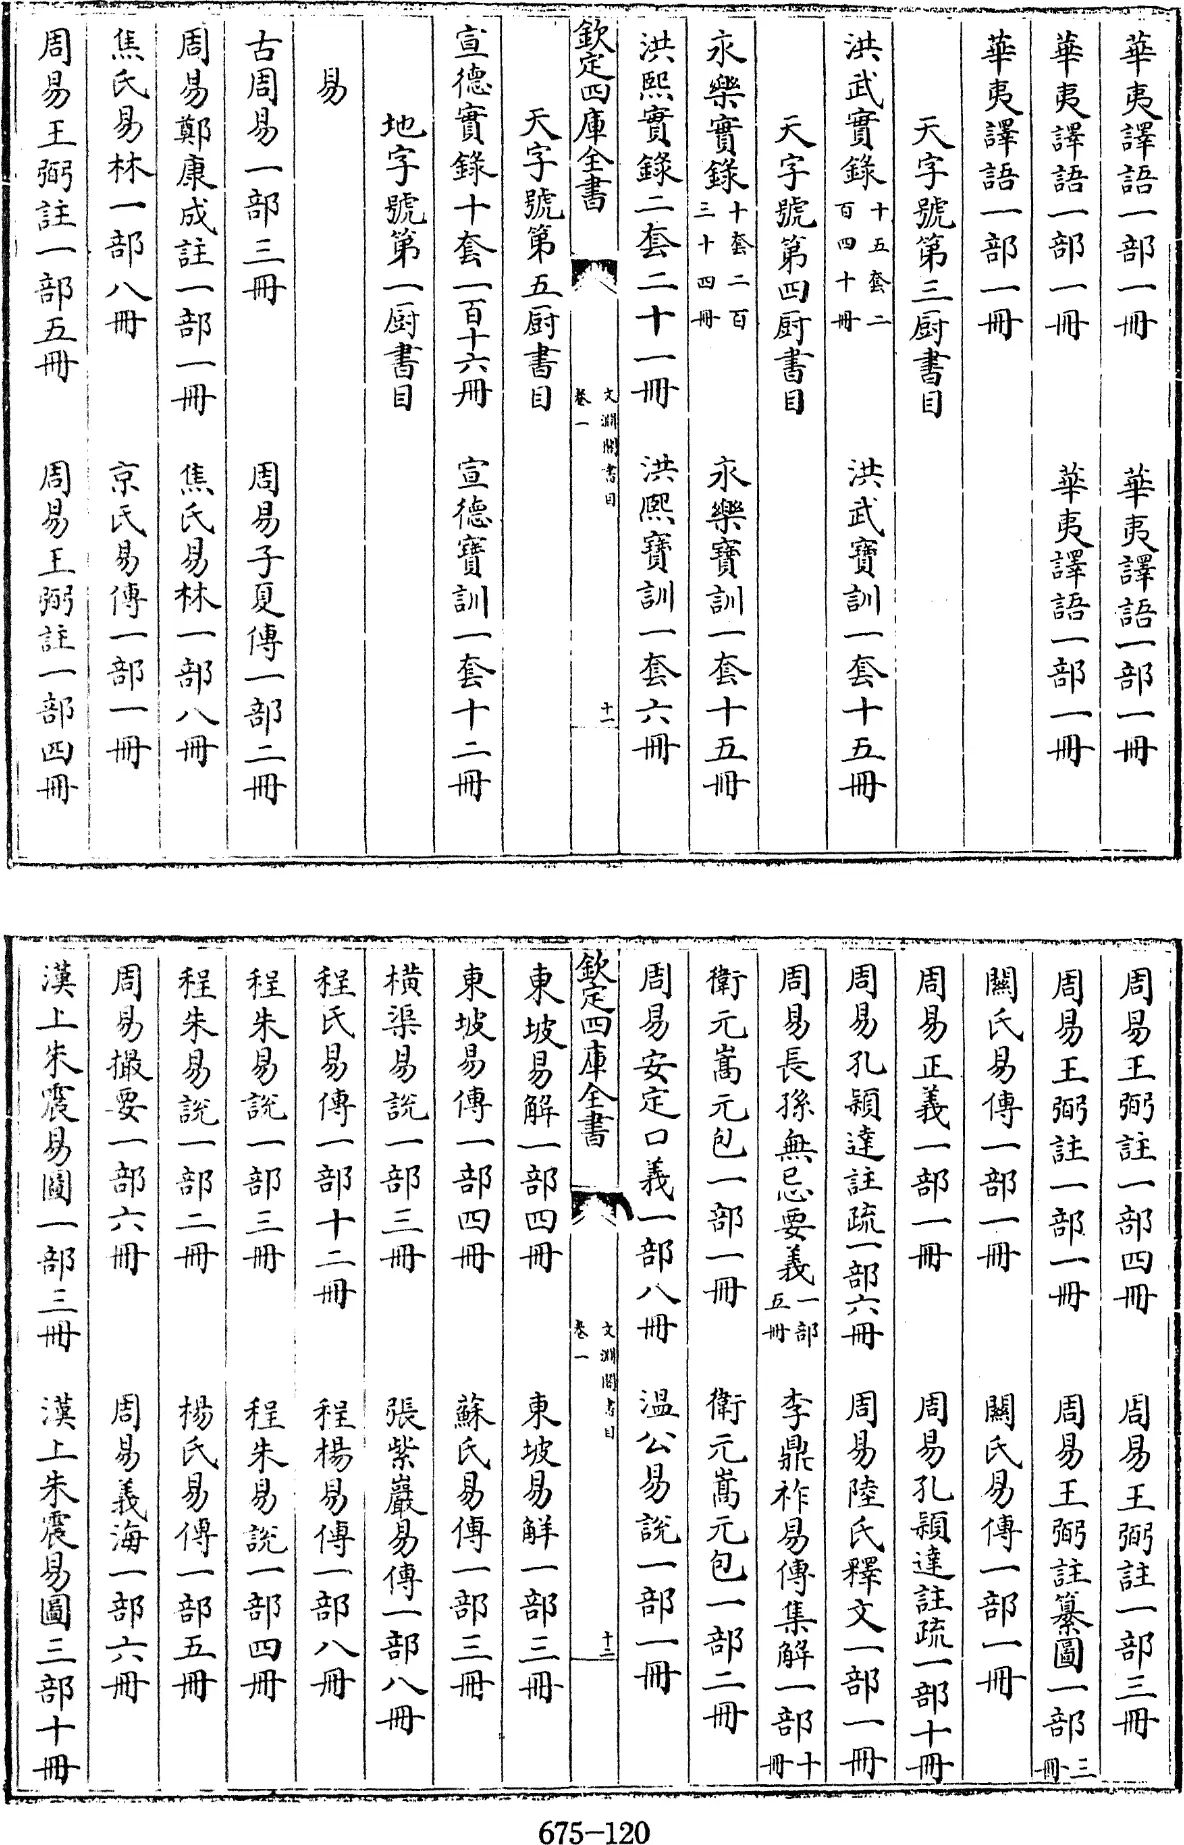 華夷譯語一部一冊　華夷譯語一部一冊
華夷譯語一部一冊　華夷譯語一部一冊
華夷譯語一部一冊
天字號第三厨書目
洪武實錄十五套二百四十冊　洪武寶訓一套十五冊
天字號第四厨書目
永樂實錄十套二百三十四冊　永樂寶訓一套十五冊
洪熙實錄二套二十一冊　洪熙寶訓一套六冊
欽定四庫全書　文淵閣書目卷一　十一
天字號第五厨書目
宣德實錄十套一百十六冊　宣德寶訓一套十二冊
地字號第一厨書目
易
古周易一部三冊　周易子夏傳一部二冊
周易鄭康成註一部一冊　焦氏易林一部八冊
焦氏易林一部八冊　京氏易傳一部一冊
周易王弼註一部五冊　周易王弼註一部四冊
周易王弼註一部四冊　周易王弼註一部三冊
周易王弼註一部一冊　周易王弼註纂圖一部三冊
關氏易傳一部一冊　關氏易傳一部一冊
周易正義一部一冊　周易孔穎達註疏一部十冊
周易孔穎達註疏一部六冊　周易陸氏釋文一部一冊
周易長孫無忌要義一部五冊　李鼎祚易傳集解一部十冊
衛元嵩元包一部一冊　衛元嵩元包一部二冊
周易安定口義一部八冊　温公易說一部一冊
欽定四庫全書　文淵閣書目卷一　十二
東坡易解一部四冊　東坡易解一部三冊
東坡易傳一部四冊　蘇氏易傳一部三冊
橫渠易說一部三冊　張紫巖易傳一部八冊
程氏易傳一部十二冊　程楊易傳一部八冊
程朱易說一部三冊　程朱易說一部四冊
程朱易說一部二冊　楊氏易傳一部五冊
周易撮要一部六冊　周易義海一部六冊
漢上朱震易圖一部三冊　漢上朱震易圖三部十冊
675-120